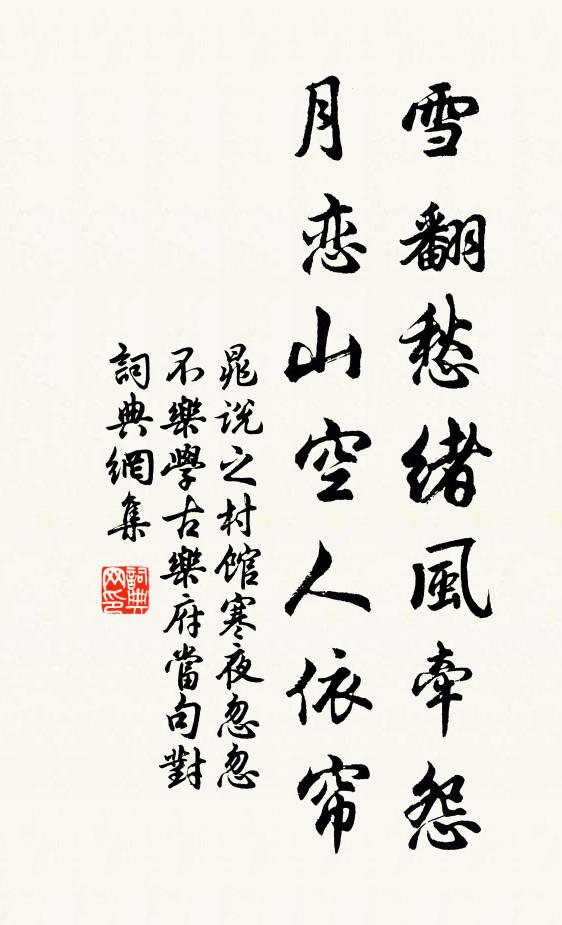 雪翻愁緒風牽怨
月恋山空人依帘
晁说之村館寒夜忽忽
不樂學古樂府當句對
詞典網集
詞典網印